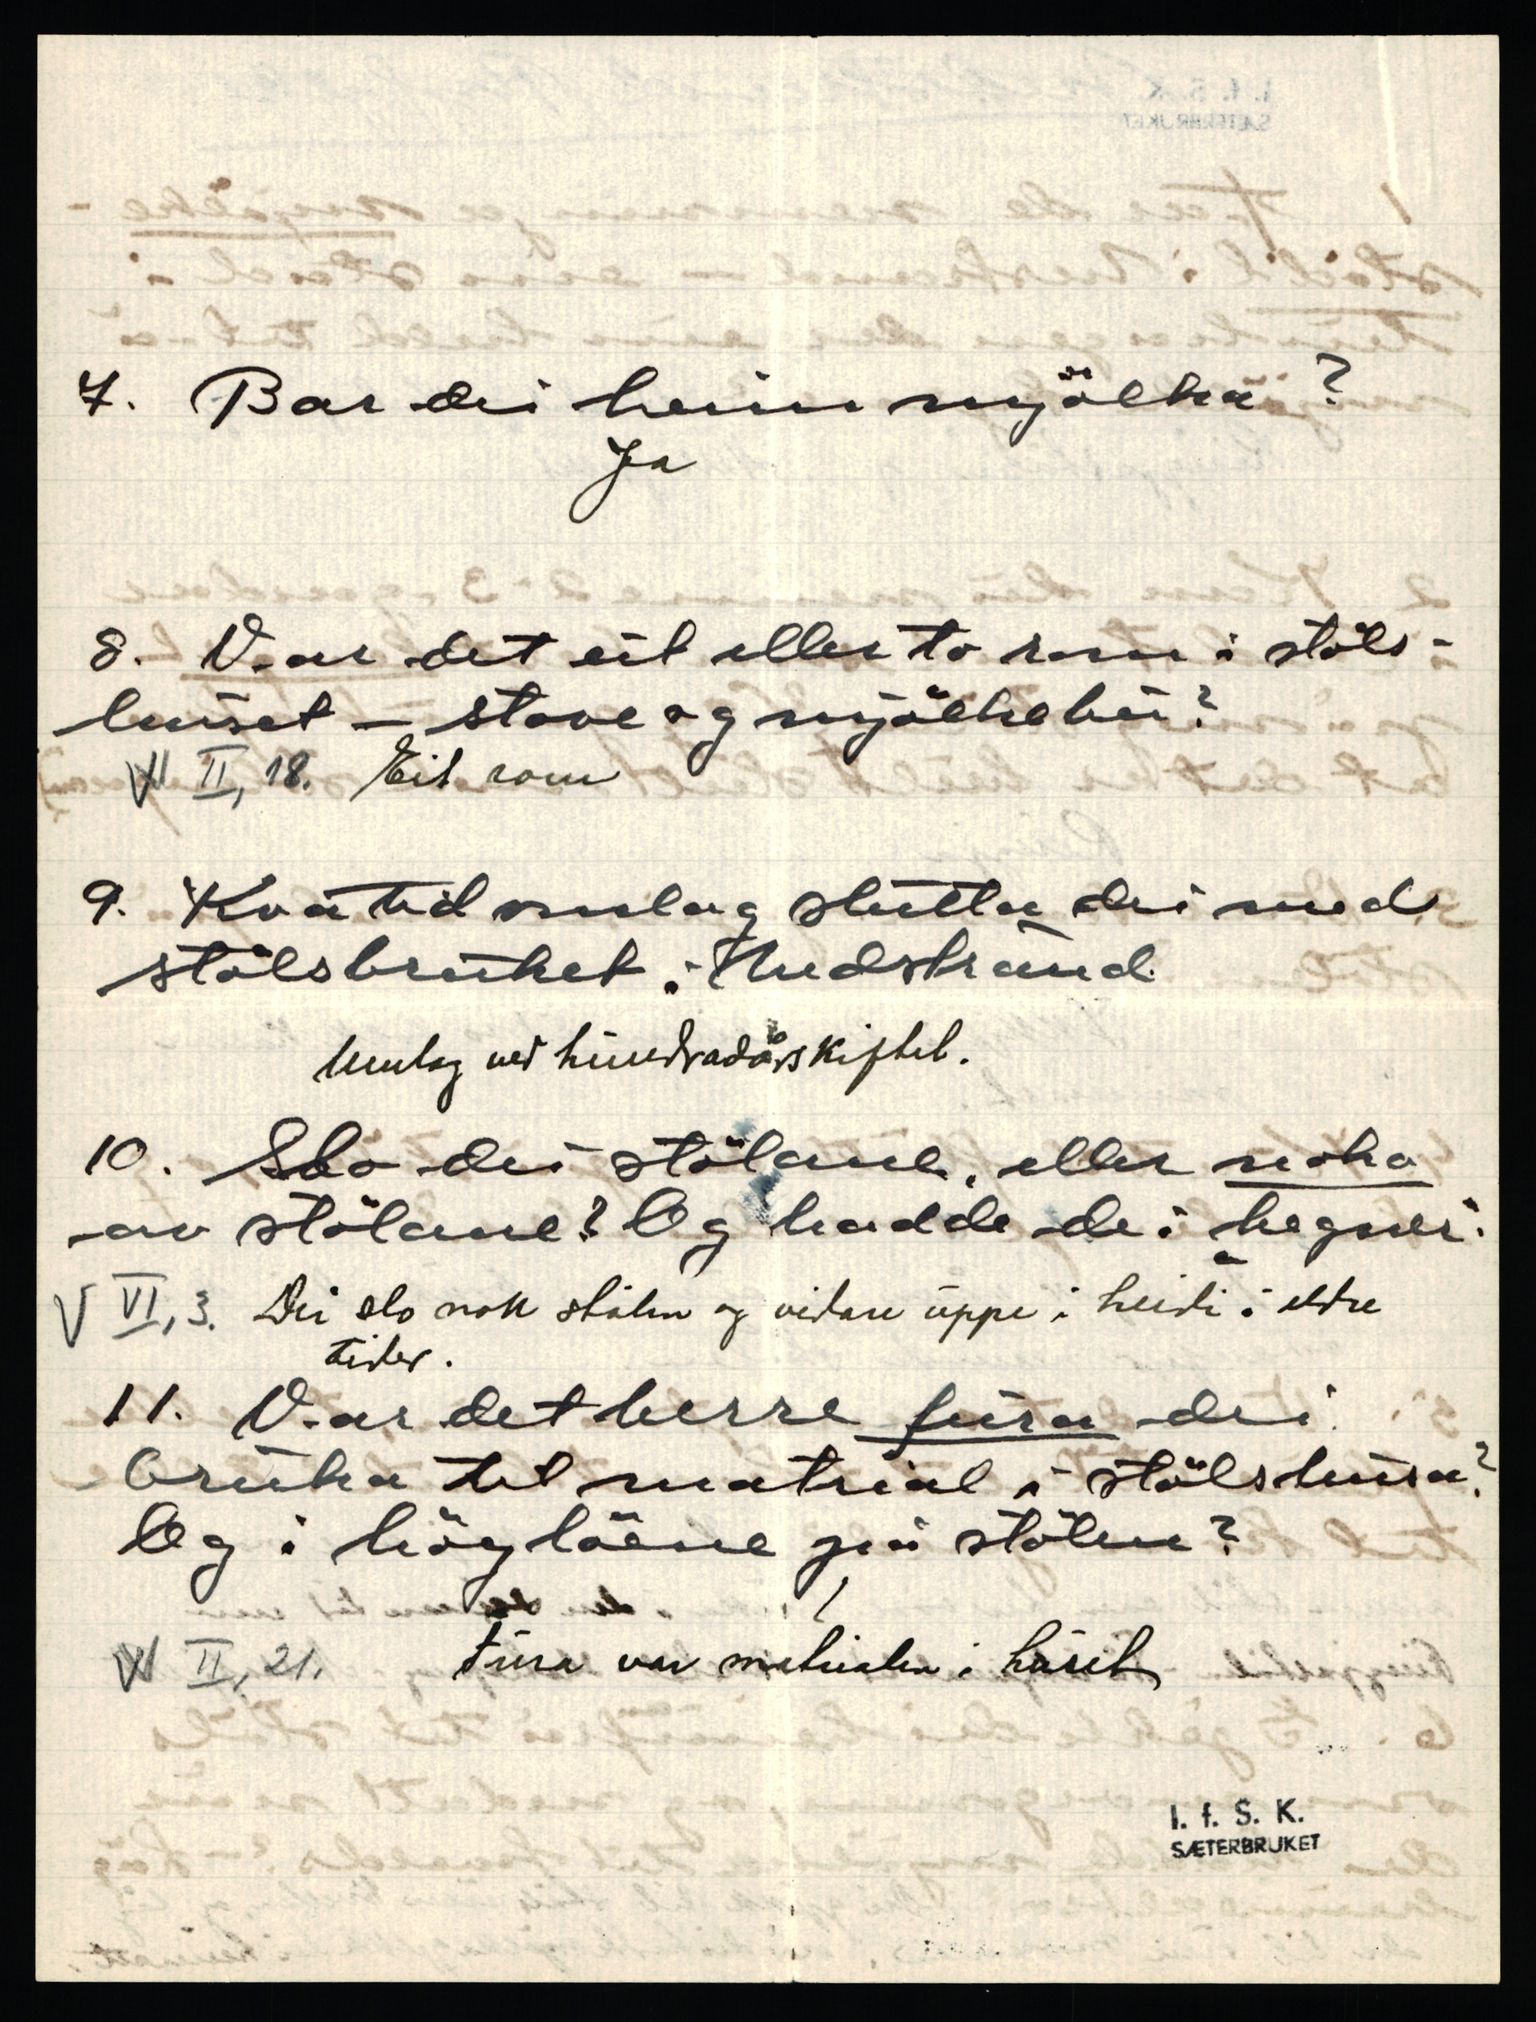 7. Bar dei heim mjölka?
Ja
8. Var det eit eller to rom i støls-
huset – stove og mjölkebu?
V II, 18. Eit rom
9. Kva tid omlag slutta dei med
stølsbruket i Nedstrand
Umlag ved hundradårskiftet.
10. Slo dei stølane, eller noko
av stølane? Og hadde dei hegner i
V VI, 3. Dei slo nok stølen og vidare uppe i heidi i eldre
tider.
11. Var det berre fura dei
bruka til matrial i stølshusa?
Og i høyløene på stølen?
V II, 21. Fura var materialen i huset
I. f. S. K.
SÆTERBRUKET